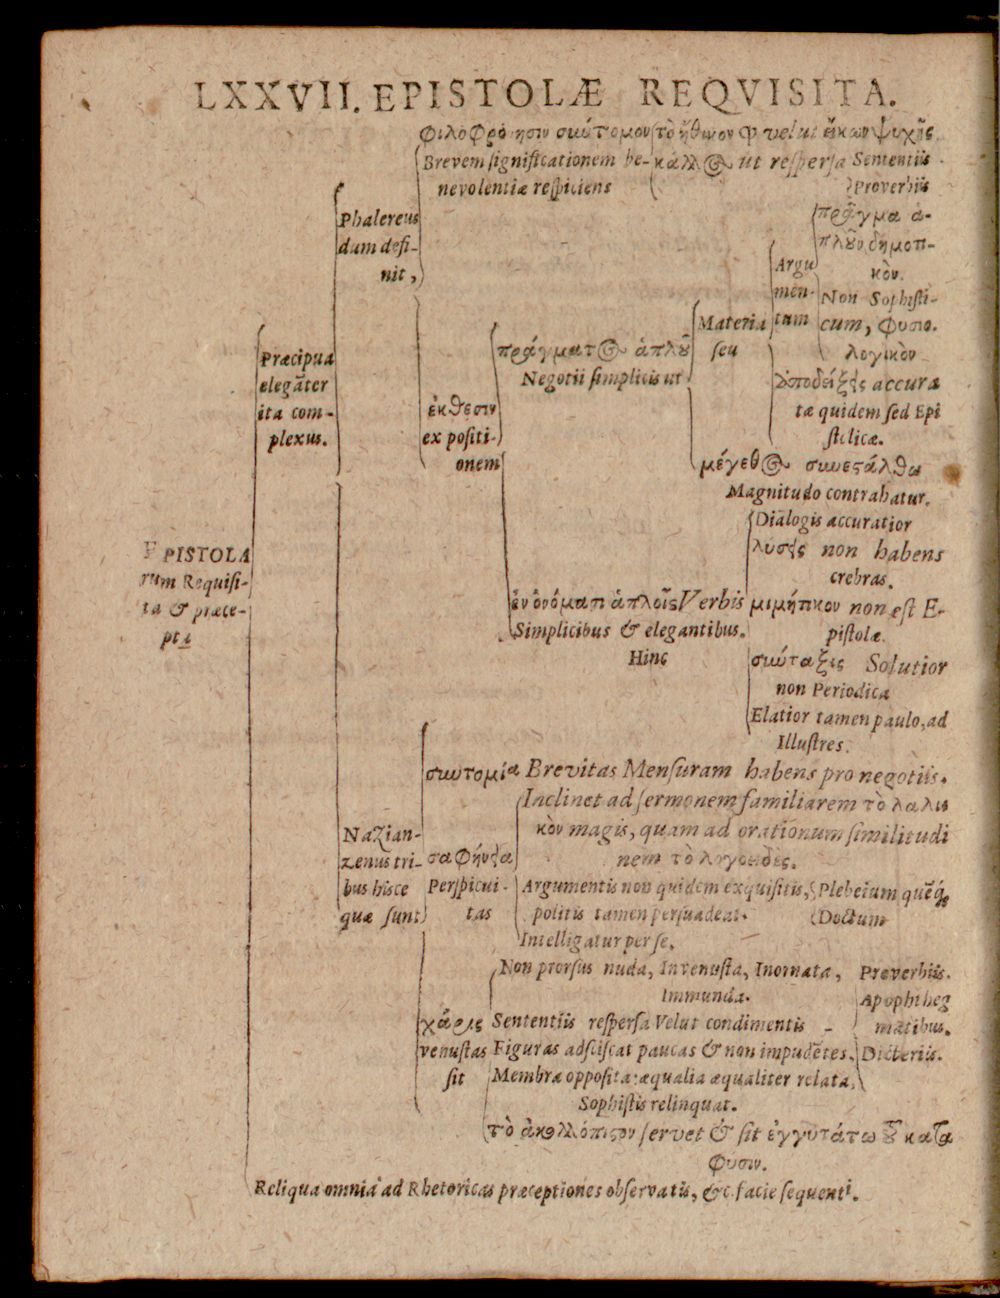 LXXVII. EPISTOLÆ REQVISITA.
EPISTOLA
rum Requisi-
ta & præce-
pta
Præcipua
elegāter
ita com-
plexus.
Phalereus
dum defi-
nit,
Φιλοφρόνησιν σύντομον
Brevem significationem be-
nevolentiæ respiciens
τὸ ἤθικον & velut εἴκων ψυχῆς
κάλλος ut respersa Sententiis
Proverbiis
ἐκθεσιν
expositi-
onem
πράγματος ἁπλοῦ
Negotii simplicis ut
Materia
seu
Argu
men-
tum
πρᾶγμα ἁ-
πλοῦν δημοτι-
κὸν.
Non Sophisti-
cum, φυσιο-
λογικὸν
ἀποδείξεις accura
tæ quidem sed Epi
stolicæ.
μέγεθος συνεστάλθω
Magnitudo contrahatur.
ἐν ὀνόμασι ἁπλοῖς Verbis
Simplicibus & elegantibus.
Hinc
Dialogis accuratior
λύσεις non habens
crebras.
μιμήτικον non est E-
pistolæ.
σύνταξις Solutior
non Periodica
Elatior tamen paulo, ad
Illustres.
Nazian-
zenus tri-
bus hisce
quæ sunt
συντομία Brevitas Mensuram habens pro negotiis.
σαφήνεια
Perspicui-
tas
Inclinet ad sermonem familiarem τὸ λαλι
κὸν magis, quam ad orationum similitudi
nem τὸ λογοειδές.
Argumentis non quidem exquisitis, Plebeium quēq;
politis tamen persuadeat. Doctum
Intelligatur per se.
χάρις
venustas
sit
Non prorsus nuda, Invenusta, Inornata,
Immunda.
Sententiis respersa Velut condimentis -
Proverbiis.
Apophtheg
matibus.
Dicteriis.
Figuras adsciscat paucas & non impudētes.
Membra opposita: æqualia æqualiter relata,
Sophistis relinquat.
τὸ ἀκαλλόπιστον servet & sit ἐγγυτάτω τοῦ κατὰ
φυσιν.
Reliqua omnia ad Rhetoricas præceptiones observatis, &c. facie sequenti.